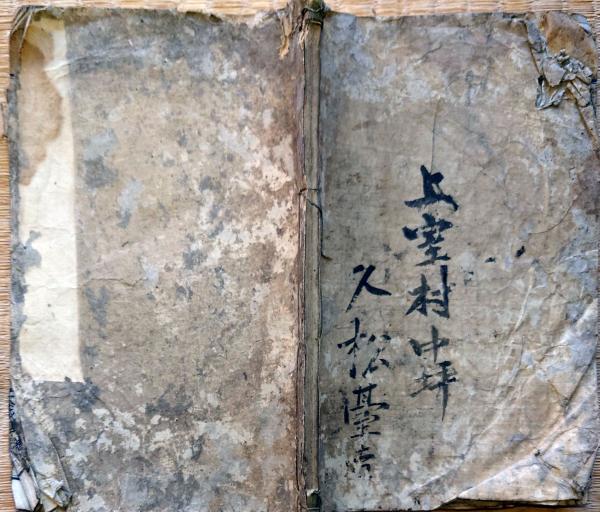 上室村中坪
久松